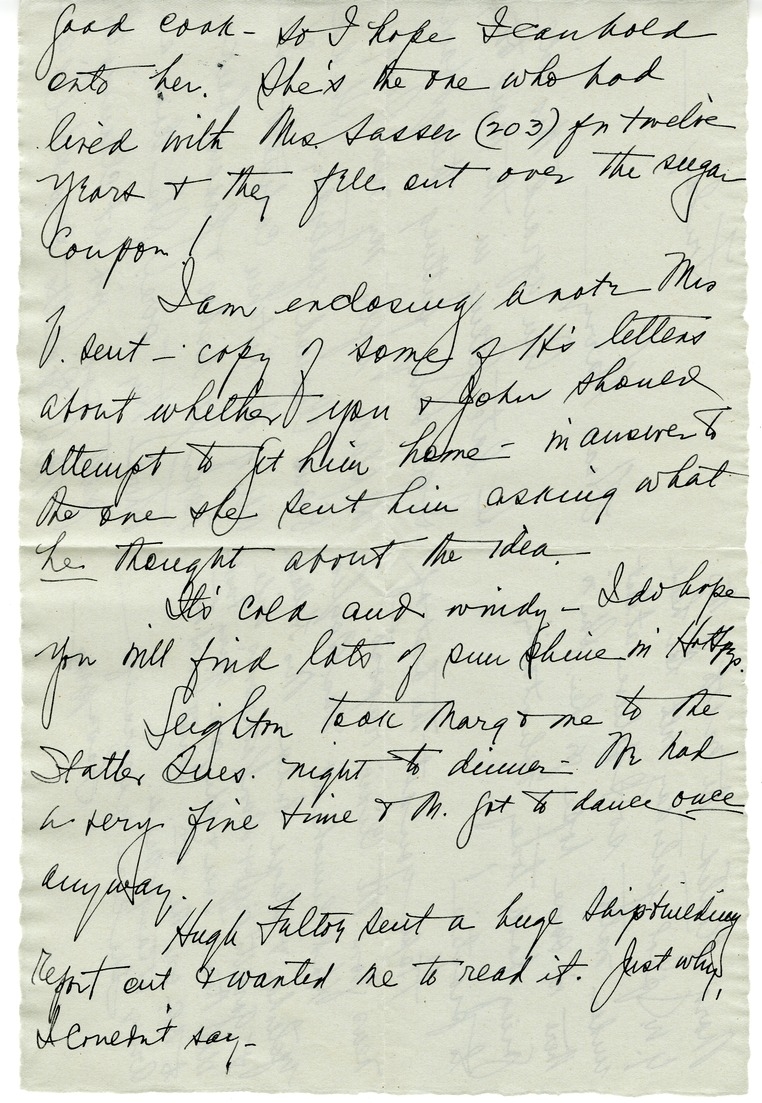 good cook - so I hope I can hold
onto her. She's the one who had
lived with Mrs. Sasser (203) for twelve
years & they fell out over the sugar
coupon!
I am enclosing a note Mrs
V. sent - copy of some of H's letters
about whether you & John should
attempt to get him home - in answer to
the one she sent him asking what
he thought about the idea -
It's cold and windy - I do hope
you will find lots of sun shine in Hot Spgs.
Leighton took Marg & me to the
Statler Tues. night to dinner - We had
a very fine time & M. got to dance once
anyway.
Hugh Fulton sent a huge shipbuilding
report out & wanted me to read it. Just why,
I couldn't say -